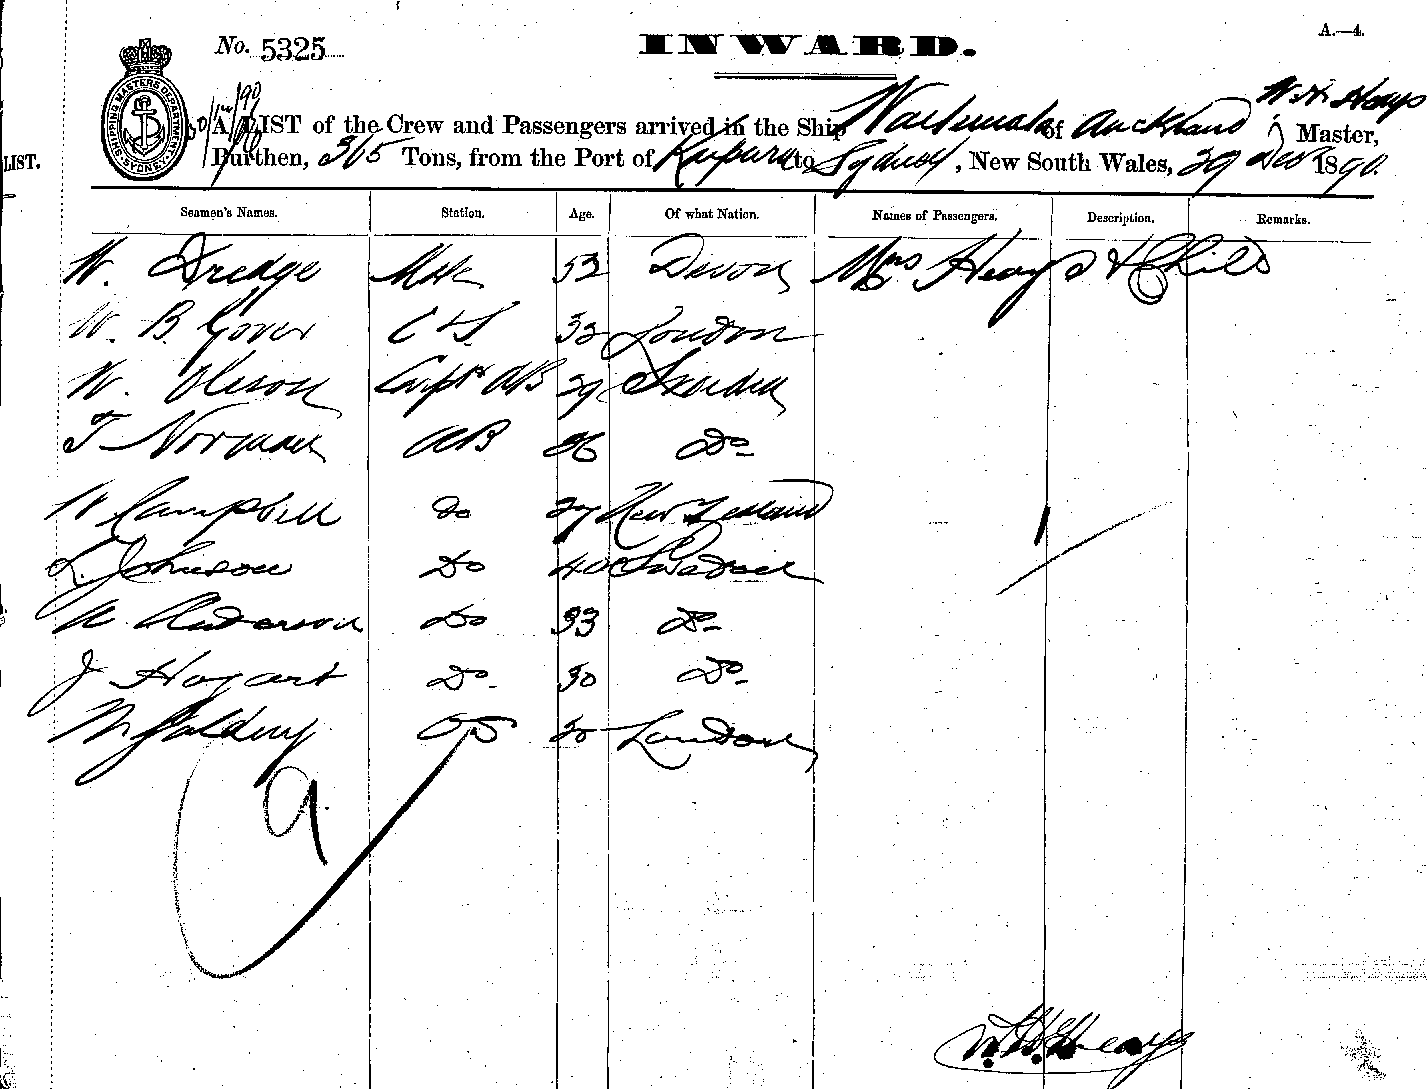 A.—4.
No. 5325
INWARD.
SHIPPING MASTERS DEPARTMENT SYDNEY
W. H. Heays
A LIST of the Crew and Passengers arrived in the Ship of Auckland Master,
LIST.
Burthen, 315 Tons, from the Port of Kaipara to Sydney, New South Wales, 29 Dec 1890.
Seamen's Names. Station. Age. Of what Nation. Names of Passengers. Description. Remarks.
W. Dredge Mate 52 Devon Mrs Heays & Child
W. B. Gover C & S. London
W. Oleson Carptr AB 29 Sweden
T Norman AB 26 Do
W Campbell do 27 New Zealand
L. Johnson Do 40 Sweden
A Anderson Do 33 Do
J Hogart Do 30 Do
M Golding OS 20 London
9
W. H. Heays